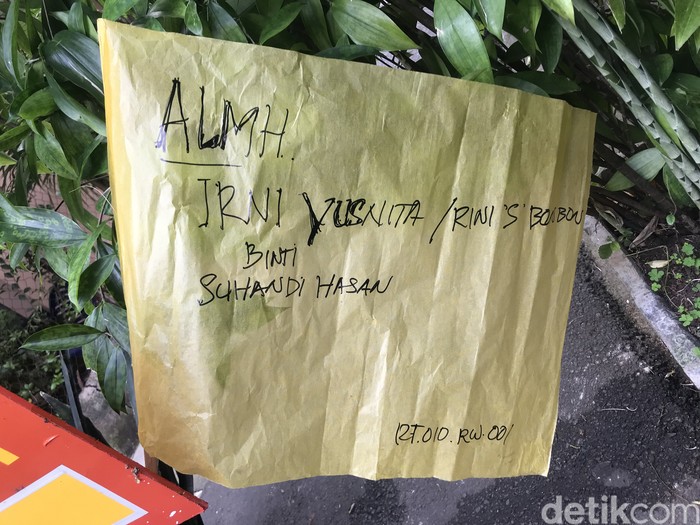 ALMH.
IRNI YUSNITA / RINI 'S' BONBON
BINTI
SUHANDI HASAN
RT.010. RW.001
detikcom